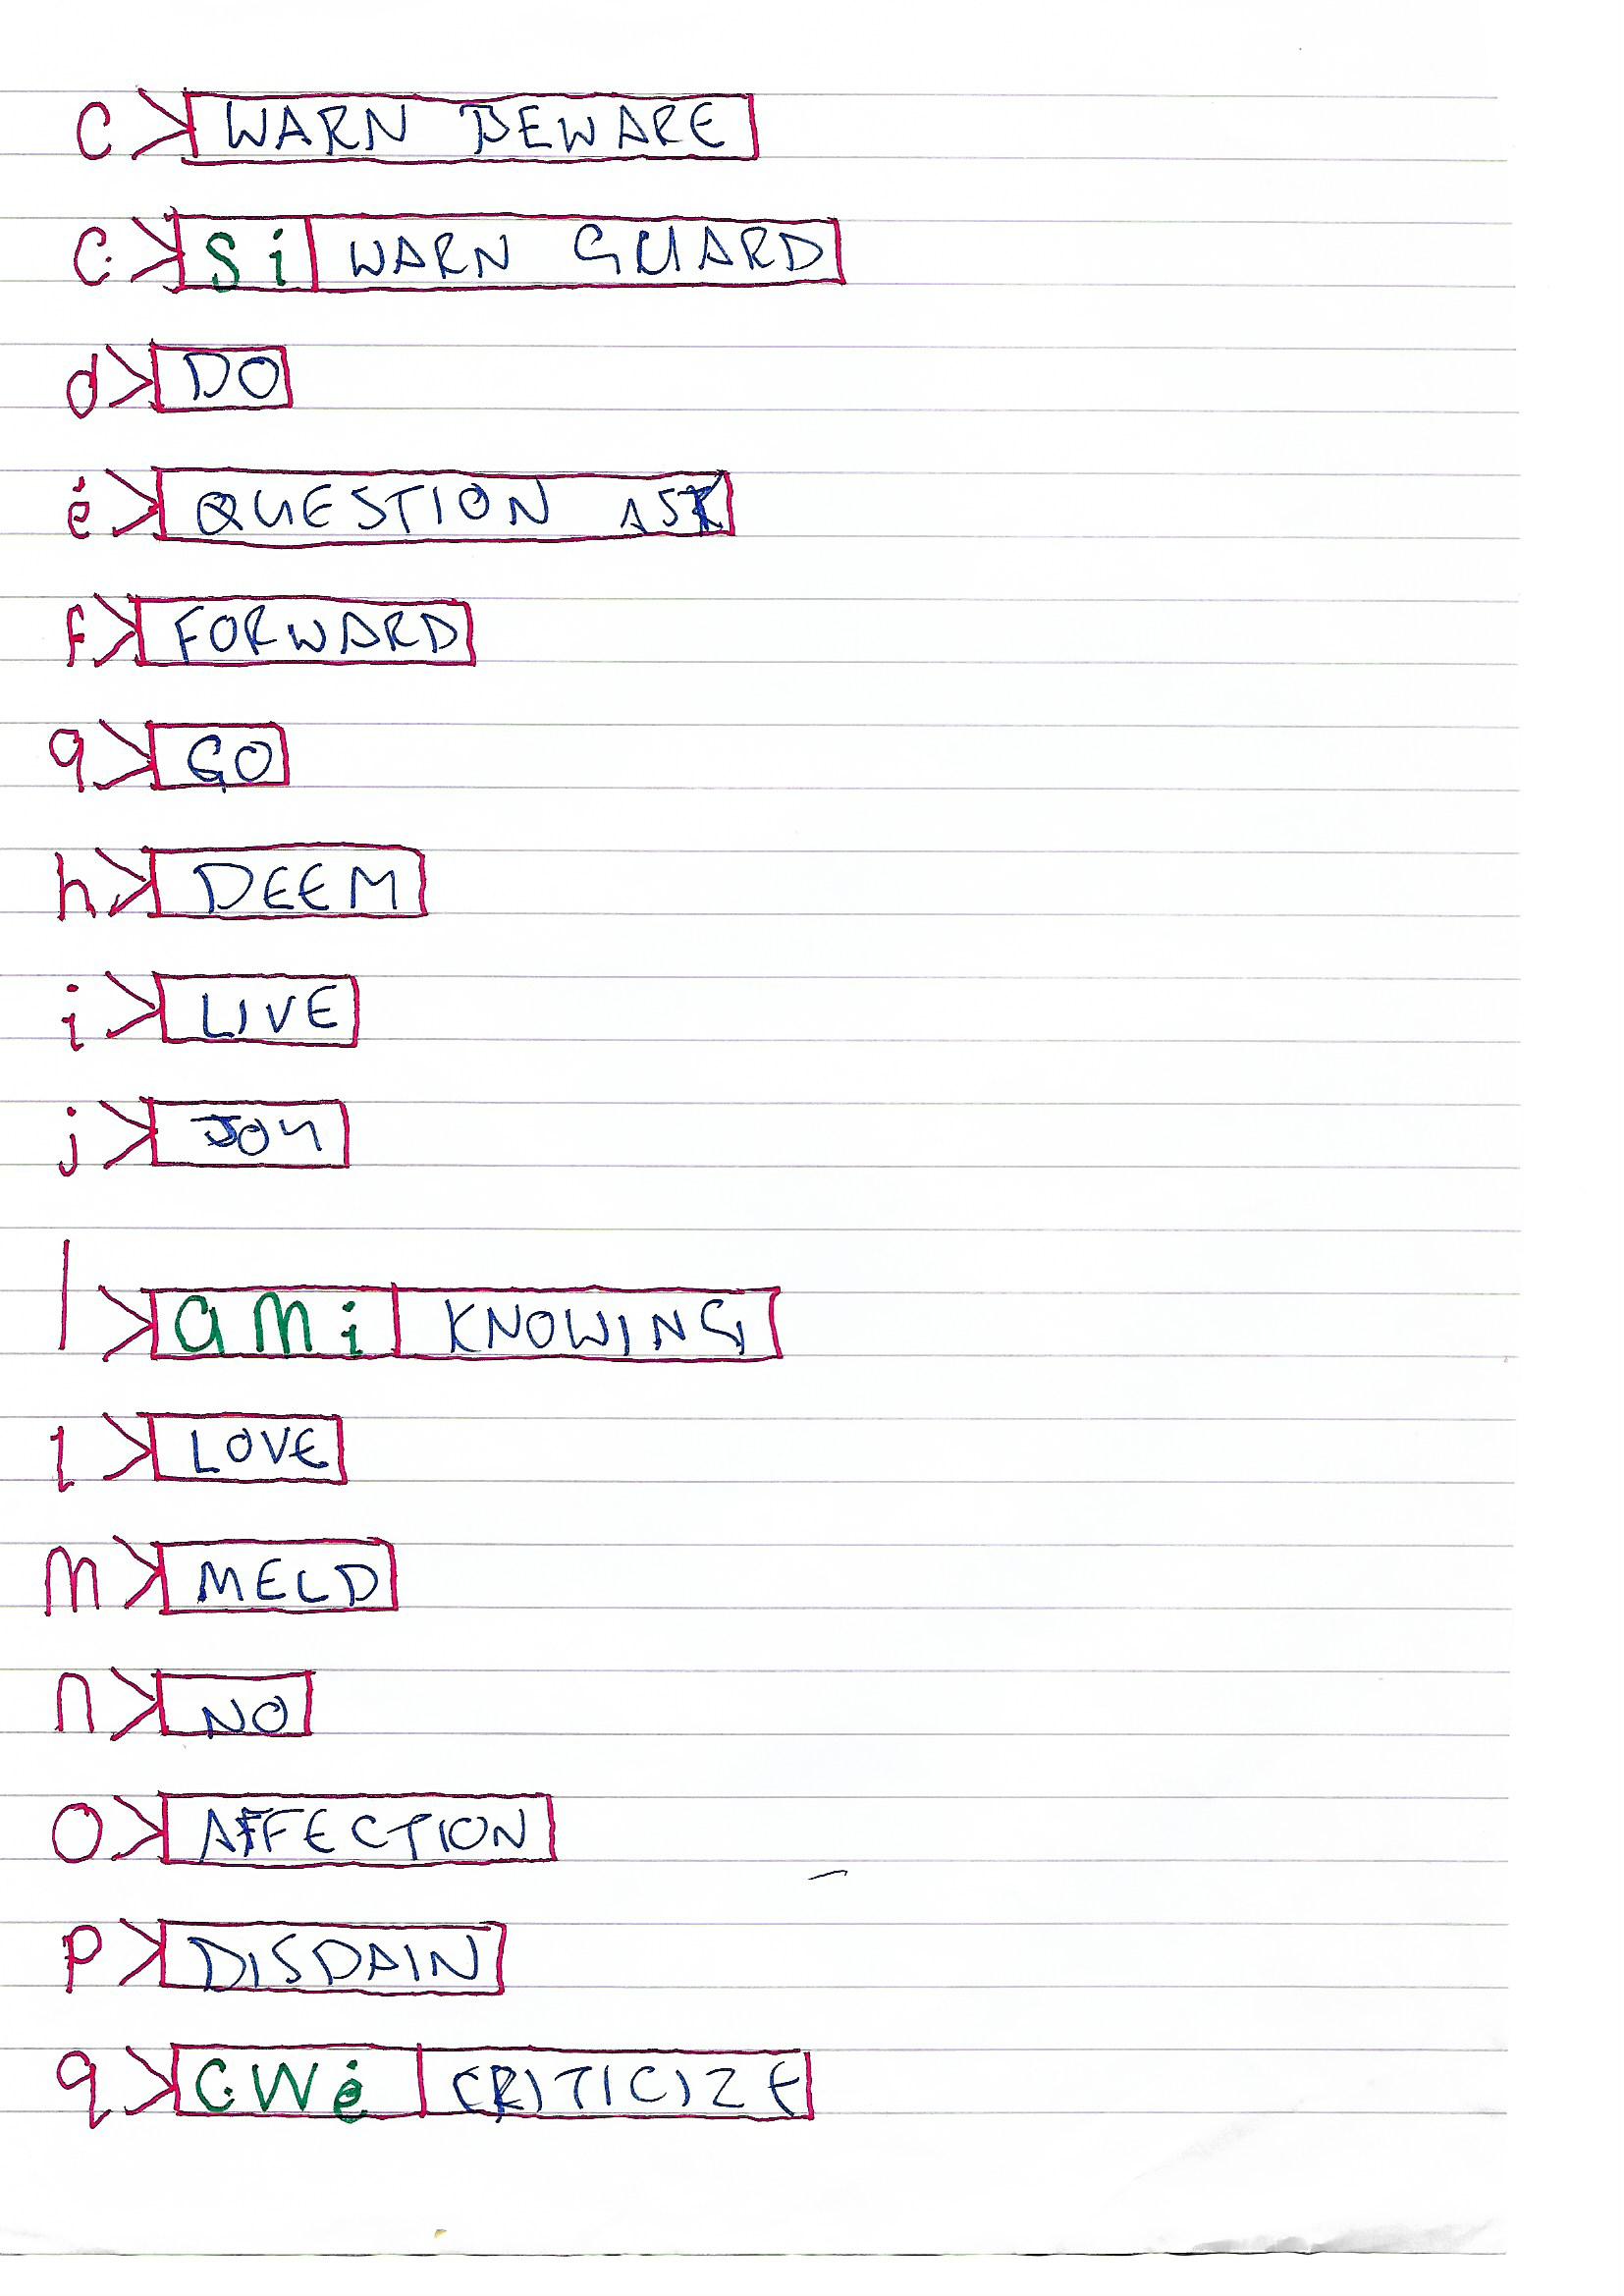 c > WARN BEWARE
ċ > si WARN GUARD
d > DO
ė > QUESTION ASK
f > FORWARD
g > GO
h > DEEM
i > LIVE
j > JOY
| > ami KNOWING
l > LOVE
m > MELD
n > NO
o > AFFECTION
p > DISDAIN
q > ċwė CRITICIZE